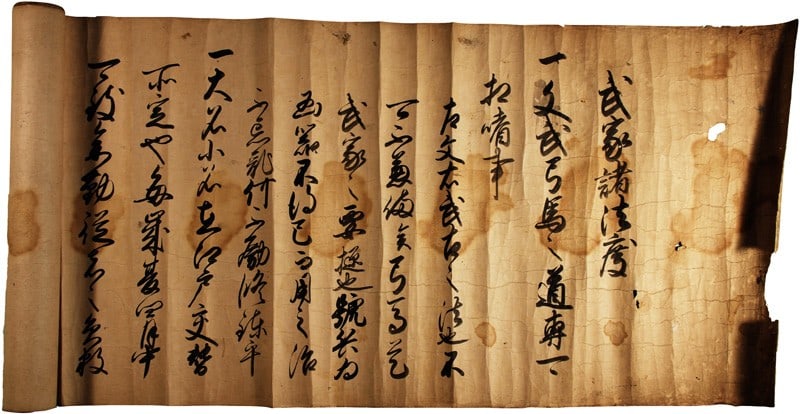 武家諸法度
一文武弓馬之道専可
相嗜事
左文右武古之法也不
可不兼備矣弓馬是
武家之要樞也號兵為
凶器不得已而用之治
不忘乱何不勵修錬乎
一大名小名在江戸交替
所定也毎歳夏四月中
可致参勤從者之員数